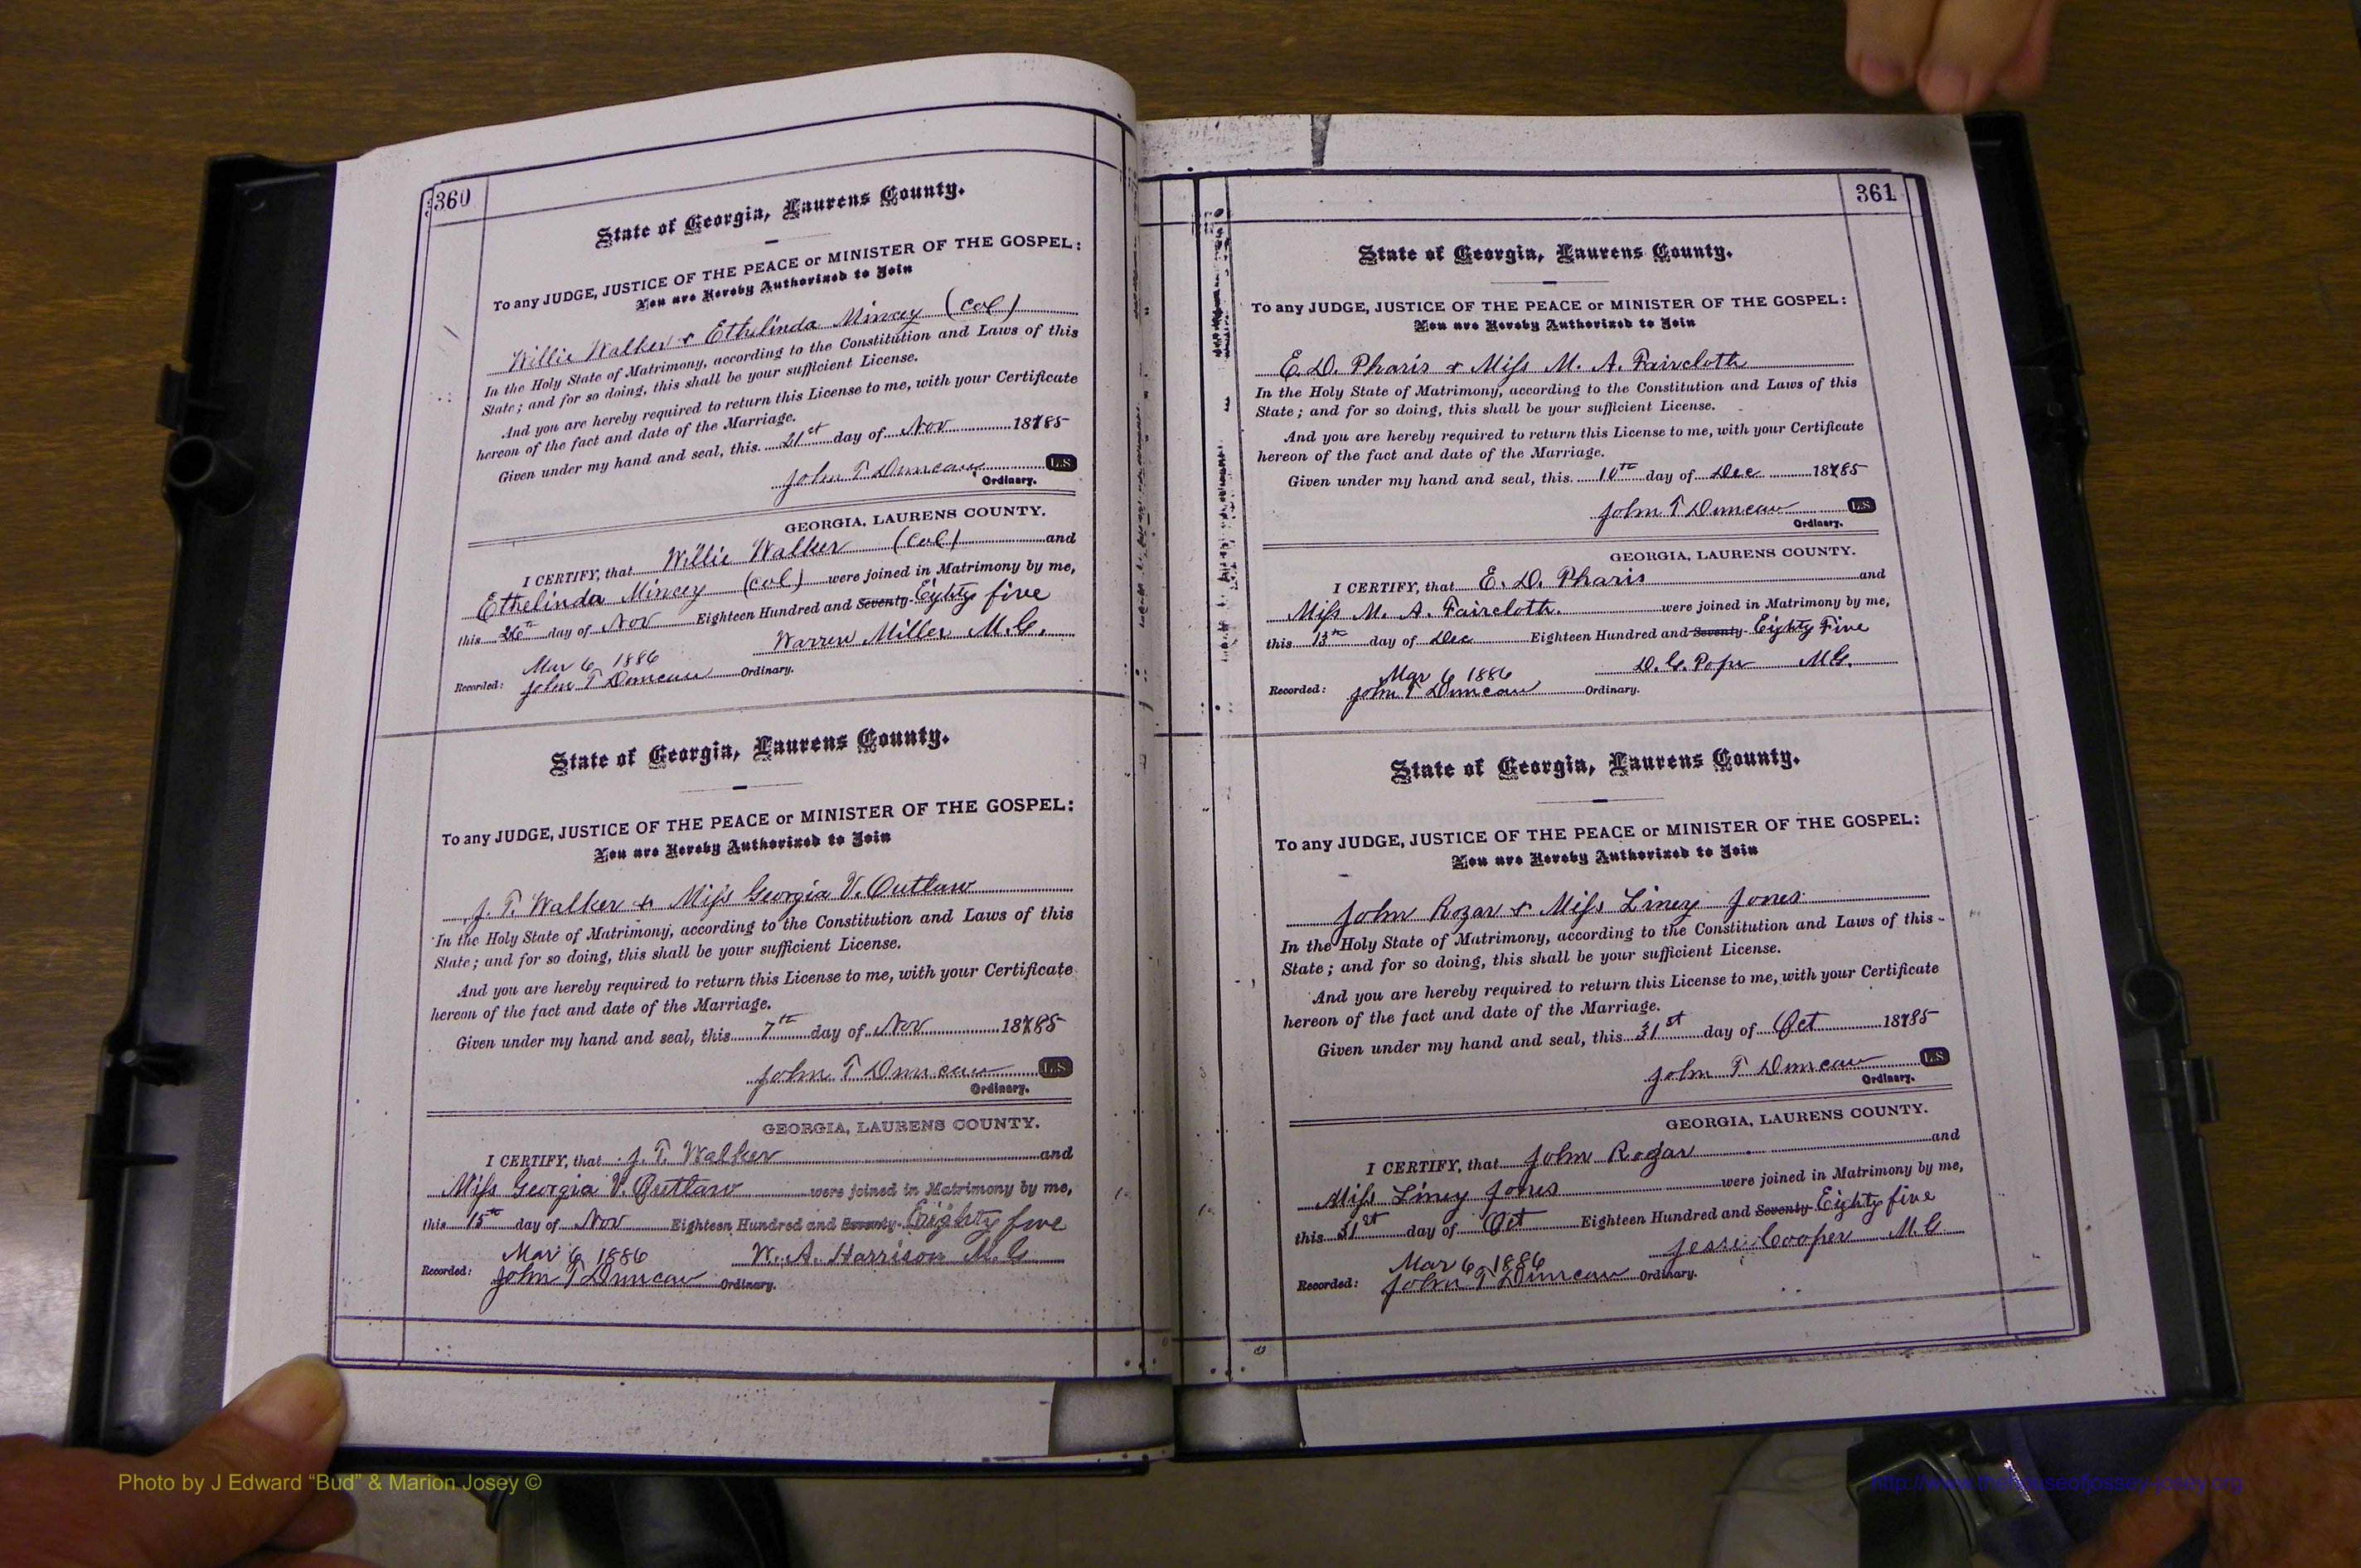 360
State of Georgia, Laurens County.
To any JUDGE, JUSTICE OF THE PEACE or MINISTER OF THE GOSPEL:
You are Hereby Authorized to Join
Willie Walker & Ethelinda Mincey (Col)
In the Holy State of Matrimony, according to the Constitution and Laws of this
State; and for so doing, this shall be your sufficient License.
And you are hereby required to return this License to me, with your Certificate
hereon of the fact and date of the Marriage.
Given under my hand and seal, this 21st day of Nov 18785
John T Duncan L.S
Ordinary.
GEORGIA, LAURENS COUNTY.
I CERTIFY, that Willie Walker (Col) and
Ethelinda Mincey (col) were joined in Matrimony by me,
this 26th day of Nov Eighteen Hundred and Seventy- Eighty five
Warren Miller M.G.
Mar 6, 1886
Recorded: John T Duncan Ordinary.
State of Georgia, Laurens County.
To any JUDGE, JUSTICE OF THE PEACE or MINISTER OF THE GOSPEL:
You are Hereby Authorized to Join
J. T. Walker & Miss Georgia V. Outlaw
In the Holy State of Matrimony, according to the Constitution and Laws of this
State; and for so doing, this shall be your sufficient License.
And you are hereby required to return this License to me, with your Certificate
hereon of the fact and date of the Marriage.
Given under my hand and seal, this 7th day of Nov 18785
John T Duncan L.S
Ordinary.
GEORGIA, LAURENS COUNTY.
I CERTIFY, that J. T. Walker and
Miss Georgia V. Outlaw were joined in Matrimony by me,
this 15th day of Nov Eighteen Hundred and Seventy- Eighty five
Mar 6 1886 W. A. Harrison M.G
Recorded: John T Duncan Ordinary.
361
State of Georgia, Laurens County.
To any JUDGE, JUSTICE OF THE PEACE or MINISTER OF THE GOSPEL:
You are Hereby Authorized to Join
E. D. Pharis & Miss M. A. Faircloth
In the Holy State of Matrimony, according to the Constitution and Laws of this
State; and for so doing, this shall be your sufficient License.
And you are hereby required to return this License to me, with your Certificate
hereon of the fact and date of the Marriage.
Given under my hand and seal, this 10th day of Dec 18785
John T Duncan L.S
Ordinary.
GEORGIA, LAURENS COUNTY.
I CERTIFY, that E. D. Pharis and
Miss M. A. Faircloth were joined in Matrimony by me,
this 13th day of Dec Eighteen Hundred and Seventy- Eighty Five
D. G. Pope M.G.
Mar 6 1886
Recorded: John T Duncan Ordinary.
State of Georgia, Laurens County.
To any JUDGE, JUSTICE OF THE PEACE or MINISTER OF THE GOSPEL:
You are Hereby Authorized to Join
John Rozar & Miss Liney Jones
In the Holy State of Matrimony, according to the Constitution and Laws of this
State; and for so doing, this shall be your sufficient License.
And you are hereby required to return this License to me, with your Certificate
hereon of the fact and date of the Marriage.
Given under my hand and seal, this 31st day of Oct 18785
John T Duncan L.S
Ordinary.
GEORGIA, LAURENS COUNTY.
I CERTIFY, that John Rozar and
Miss Liney Jones were joined in Matrimony by me,
this 31st day of Oct Eighteen Hundred and Seventy- Eighty five
Mar 6, 1886 Jessie Cooper M.G.
Recorded: John T Duncan Ordinary.
Photo by J Edward “Bud” & Marion Josey ©
http://www.thehouseofjossey-josey.org